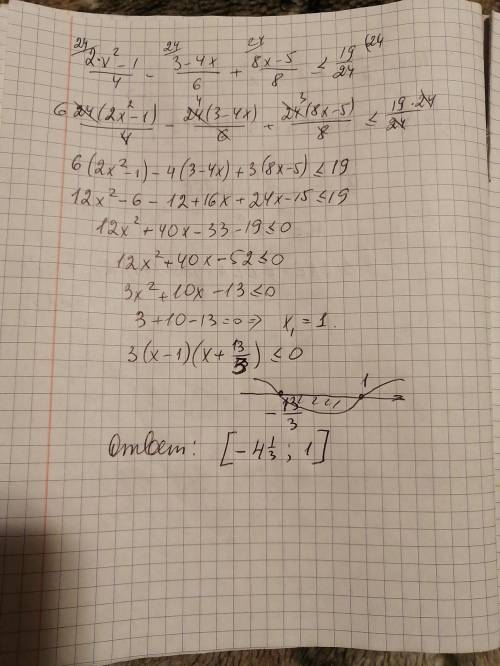 ²⁴/ (2·x² - 1)/4 - ²⁴/ (3 - 4x)/6 + ²⁴/ (8x - 5)/8 ≤ 19/24 (24
6 24(2x² - 1)/4 - 4 24(3 - 4x)/6 + 24 3(8x - 5)/8 ≤ 19·24/24
6(2x² - 1) - 4(3 - 4x) + 3(8x - 5) ≤ 19
12x² - 6 - 12 + 16x + 24x - 15 ≤ 19
12x² + 40x - 33 - 19 ≤ 0
12x² + 40x - 52 ≤ 0
3x² + 10x - 13 ≤ 0
3 + 10 - 13 = 0 => x₁ = 1.
3(x - 1)(x + 13/3) ≤ 0
1
- 13/3
Ответ: [-4 1/3 ; 1]